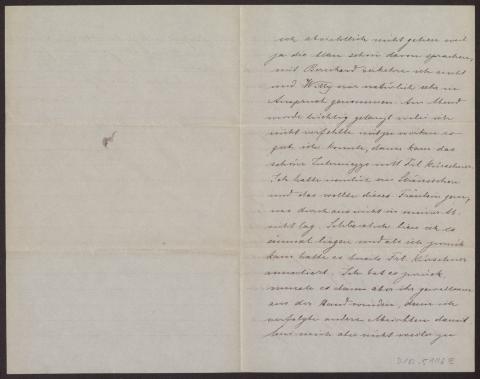 ich absichtlich nicht gehen weil
ja die Man schon davon sprachen,
mit Bernhard verkehre ich nicht
und Willy war natürlich sehr in
Anspruch genommen. Am Abend
wurde tüchtig getanzt wobei ich
nicht verfehlte mitzuwirken so
gut ich konnte, dann kam das
schöne mit Frl. Kirschner.
Ich hatte nämlich ein Sträusschen
und das wollte dieses Fräulein gern,
was durchaus nicht in meiner
nicht lag. Schliesslich liess ich es
einmal liegen und als ich zurück
kam hatte es bereits Frl. Kirschner
annectiert. Ich bat es zurück,
musste es dann aber ihr gewaltsam
aus der Hand winden, denn ich
verfolgte andere Absichten damit
um mich aber nicht weiter zu